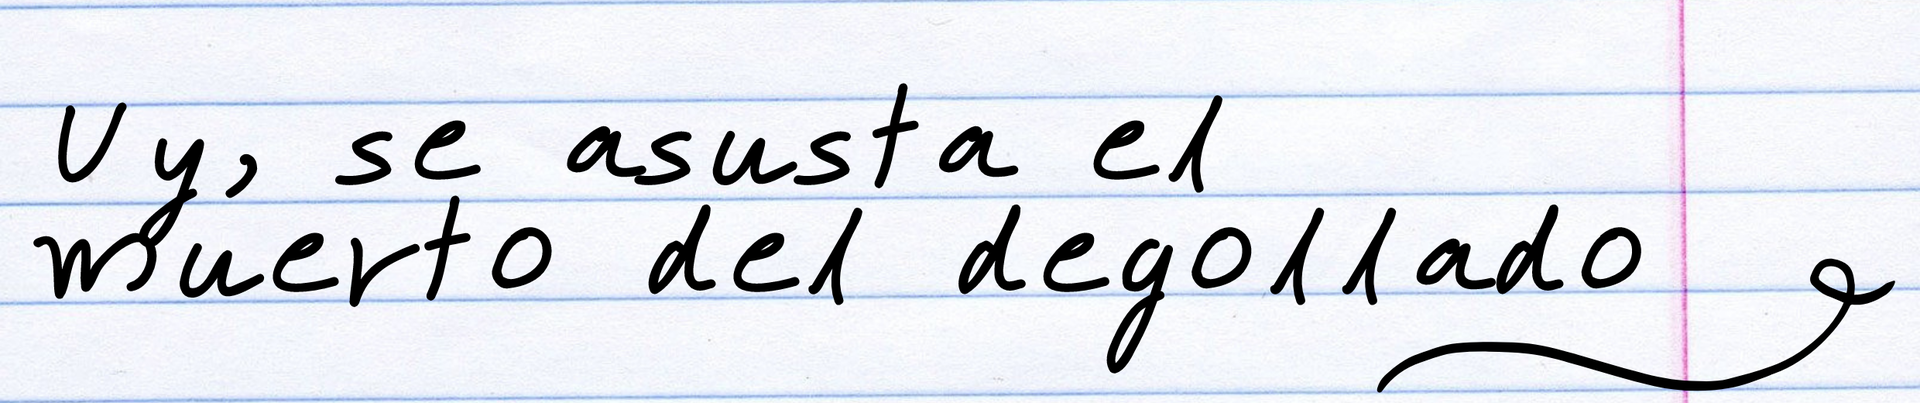 Uy, se asusta el
muerto del degollado